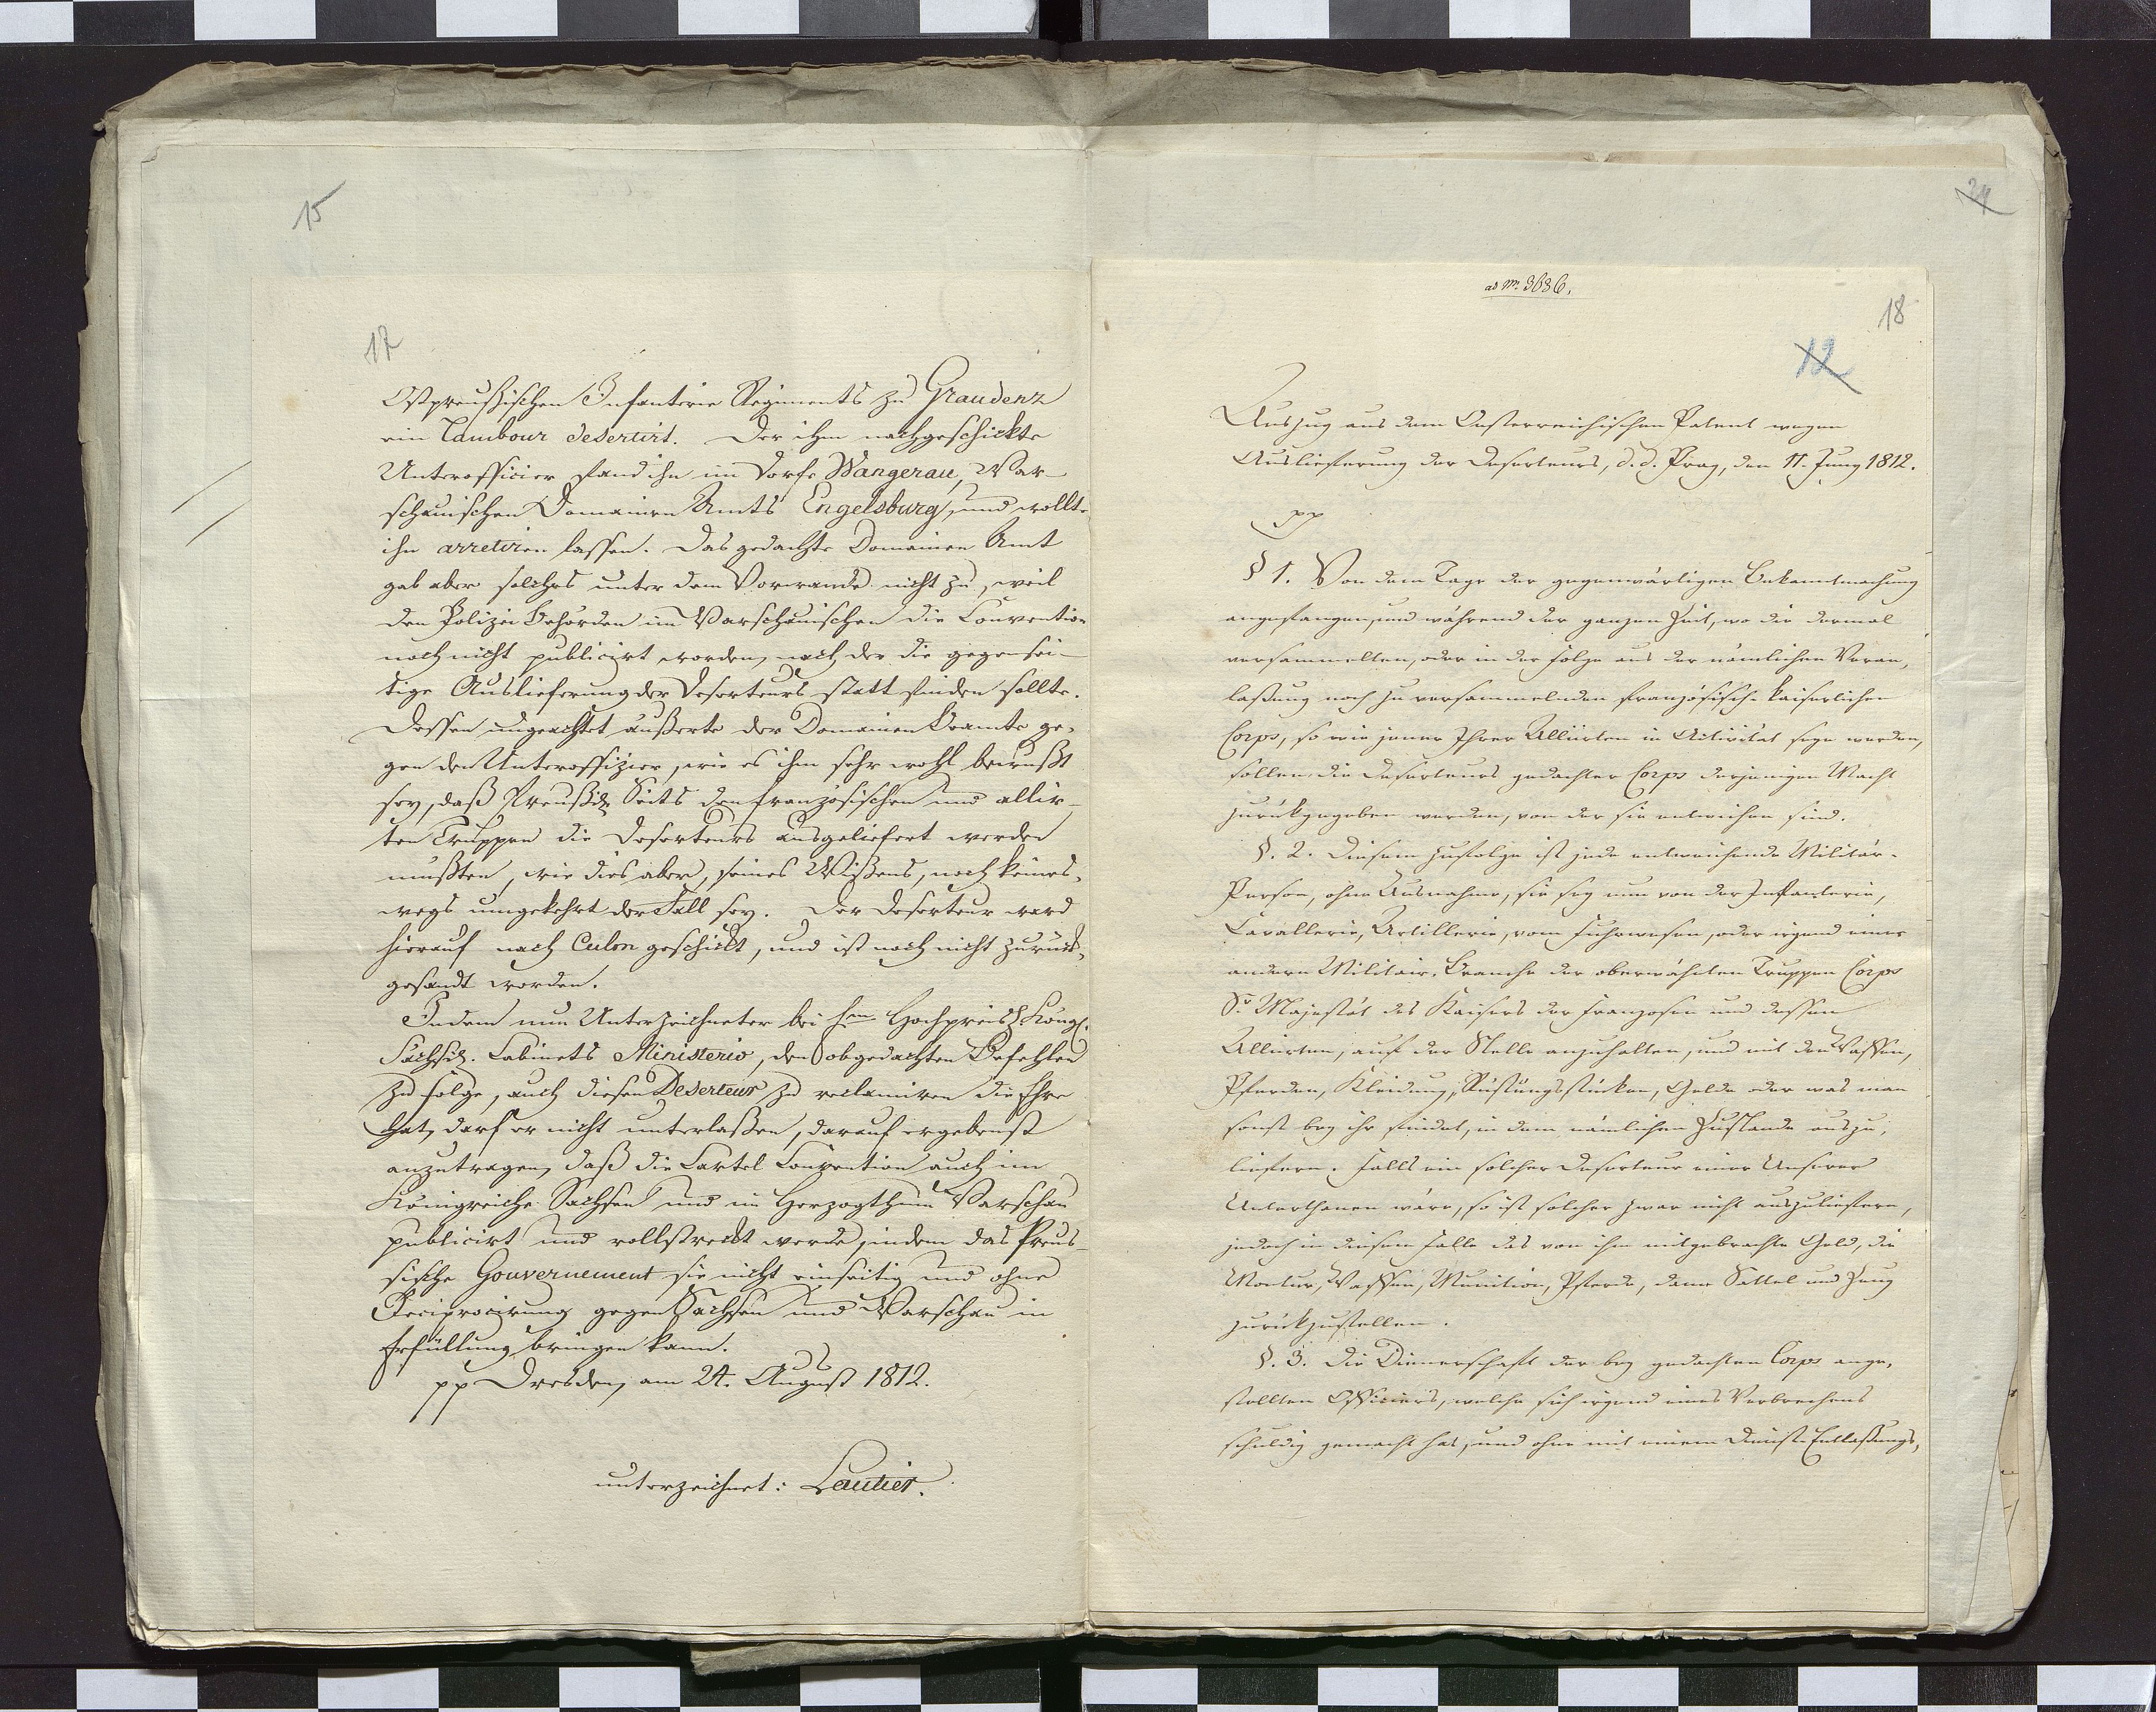 15
17
Ostpreußischen Infanterie Regiments zu Graudenz
ein Tambour desertirt. Der ihm nachgeschickte
Unterofficier fand ihn im Dorfe Wangerau, War-
schauischen Domainen Amts Engelsburg, und wollte
ihn arretiren lassen. Das gedachte Domainen Amt
gab aber solches unter dem Vorwande nicht zu, weil
den Polizei Behörden im Warschauischen die Convention
noch nicht publicirt worden, nach der die gegensei-
tige Auslieferung der Deserteurs statt finden sollte.
Dessen ungeachtet äußerte der Domainen Beamte ge-
gen den Unteroffizier, wie es ihm sehr wohl bewußt
sey, daß Preußisch. Seits den französischen und alliir-
ten Truppen die Deserteurs ausgeliefert werden
müßten, wie dies aber, seines Wißens, noch keines-
wegs umgekehrt der Fall sey. Der Deserteur ward
hierauf nach Culm geschickt, und ist noch nicht zurück-
gesandt worden.
Indem nun Unterzeichneter bei Hochpreisl. Königl.
Sächsisch. Cabinets Ministerio, den obgedachten Befehlen
zu folge, auch diesen Deserteur zu reclamiren die Ehre
hat, darf er nicht unterlaßen, darauf ergebenst
anzutragen, daß die Cartel Convention auch im
Königreiche Sachsen und im Herzogthum Warschau
publicirt und vollstreckt werde, indem das Preus-
sische Gouvernement sie nicht einseitig und ohne
Reciprocirung gegen Sachsen und Warschau in
Erfüllung bringen kann.
pp Dresden, am 24. August 1812.
unterzeichnet: Lautier.
24
ad Nr. 3636.
18
12
Auszug aus dem Oesterreichischen Patent wegen
Auslieferung der Deserteurs, d. d. Prag, den 11. Juny 1812.
pp
§ 1. Von dem Tage der gegenwärtigen Bekanntmachung
angefangen, und während der ganzen Zeit, wo die dermal
versammelten, oder in der Folge aus der nämlichen Veran-
laßung noch zu versammelnden französisch-kaiserlichen
Corps, so wie jener Ihrer Alliirten in Activität seyn werden,
sollen die Deserteurs gedachter Corps derjenigen Macht
zurückgegeben werden, von der sie entwichen sind.
§. 2. Diesem zufolge ist jede entweichende Militär-
Person, ohne Ausnahme, sie sey nun von der Infanterie,
Cavallerie, Artillerie, vom Fuhrwesen, oder irgend einer
andern Militair-Branche der oberwähnten Truppen Corps
Sr. Majestät des Kaisers der Franzosen und dessen
Alliirten, auf der Stelle anzuhalten, und mit den Waffen,
Pferden, Kleidung, Rüstungsstücken, Gelde oder was man
sonst bey ihr findet, in dem nämlichen Zustande auszu-
liefern. Falls ein solcher Deserteur einer Unserer
Unterthanen wäre, so ist solcher zwar nicht auszuliefern,
jedoch in diesem Falle das von ihm mitgebrachte Geld, die
Montur, Waffen, Munition, Pferde, dann Sattel und Zeug
zurückzustellen.
§. 3. Die Dienerschaft der bey gedachten Corps ange-
stellten Officiers, welche sich irgend eines Verbrechens
schuldig gemacht hat, und ohne mit einem Dienst-Entlaßungs-